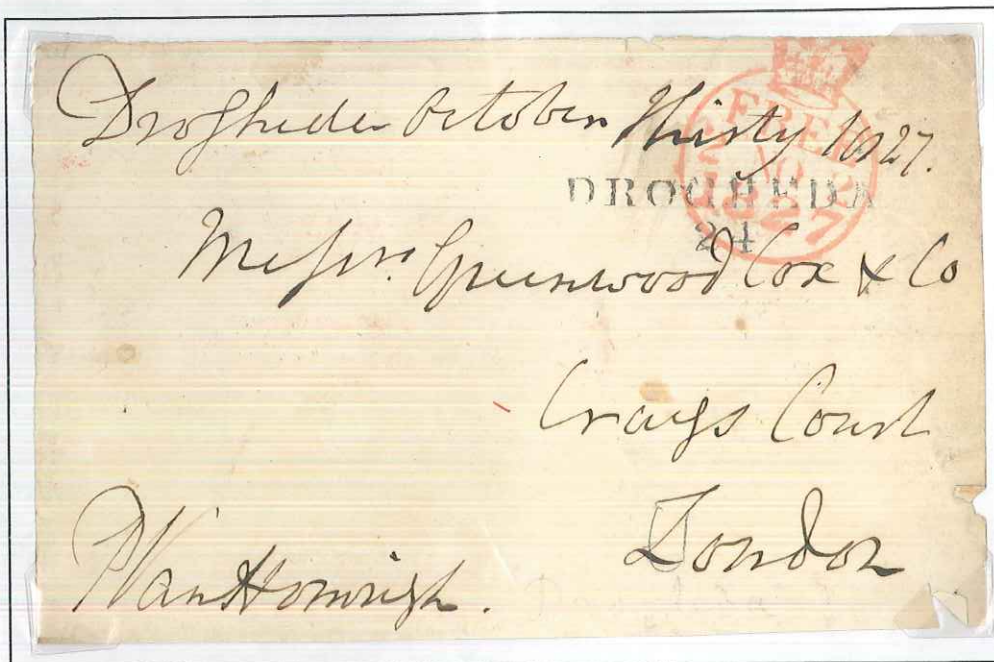 Drogheda October Thirty 1827.
FREE
2 NO 2
1827
DROGHEDA
24
Messrs. Greenwood Cox & Co
Craigs Court
London
P Van Homrigh.